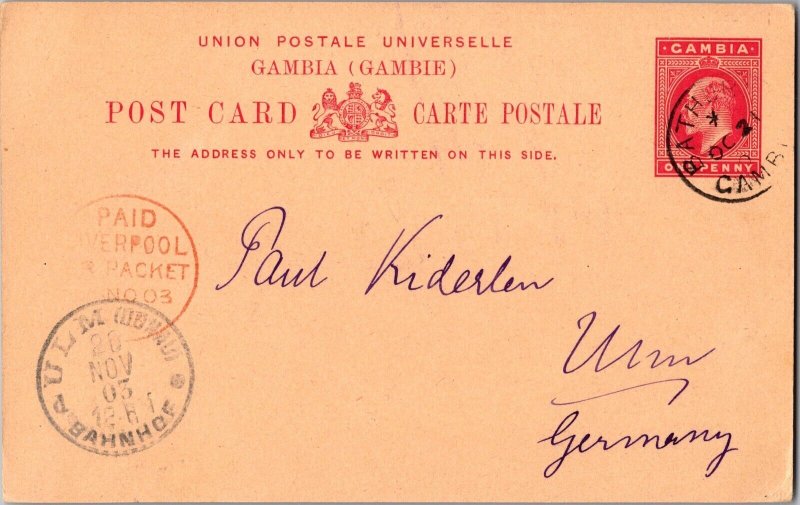 UNION POSTALE UNIVERSELLE
GAMBIA (GAMBIE)
POST CARD CARTE POSTALE
THE ADDRESS ONLY TO BE WRITTEN ON THIS SIDE.
GAMBIA
ONE PENNY
BATH
*
OC 21
GAMBI
PAID
LIVERPOOL
PACKET
NO 03
ULM
20
NOV
03
BAHNHOF
Paul Kiderlen
Ulm
Germany